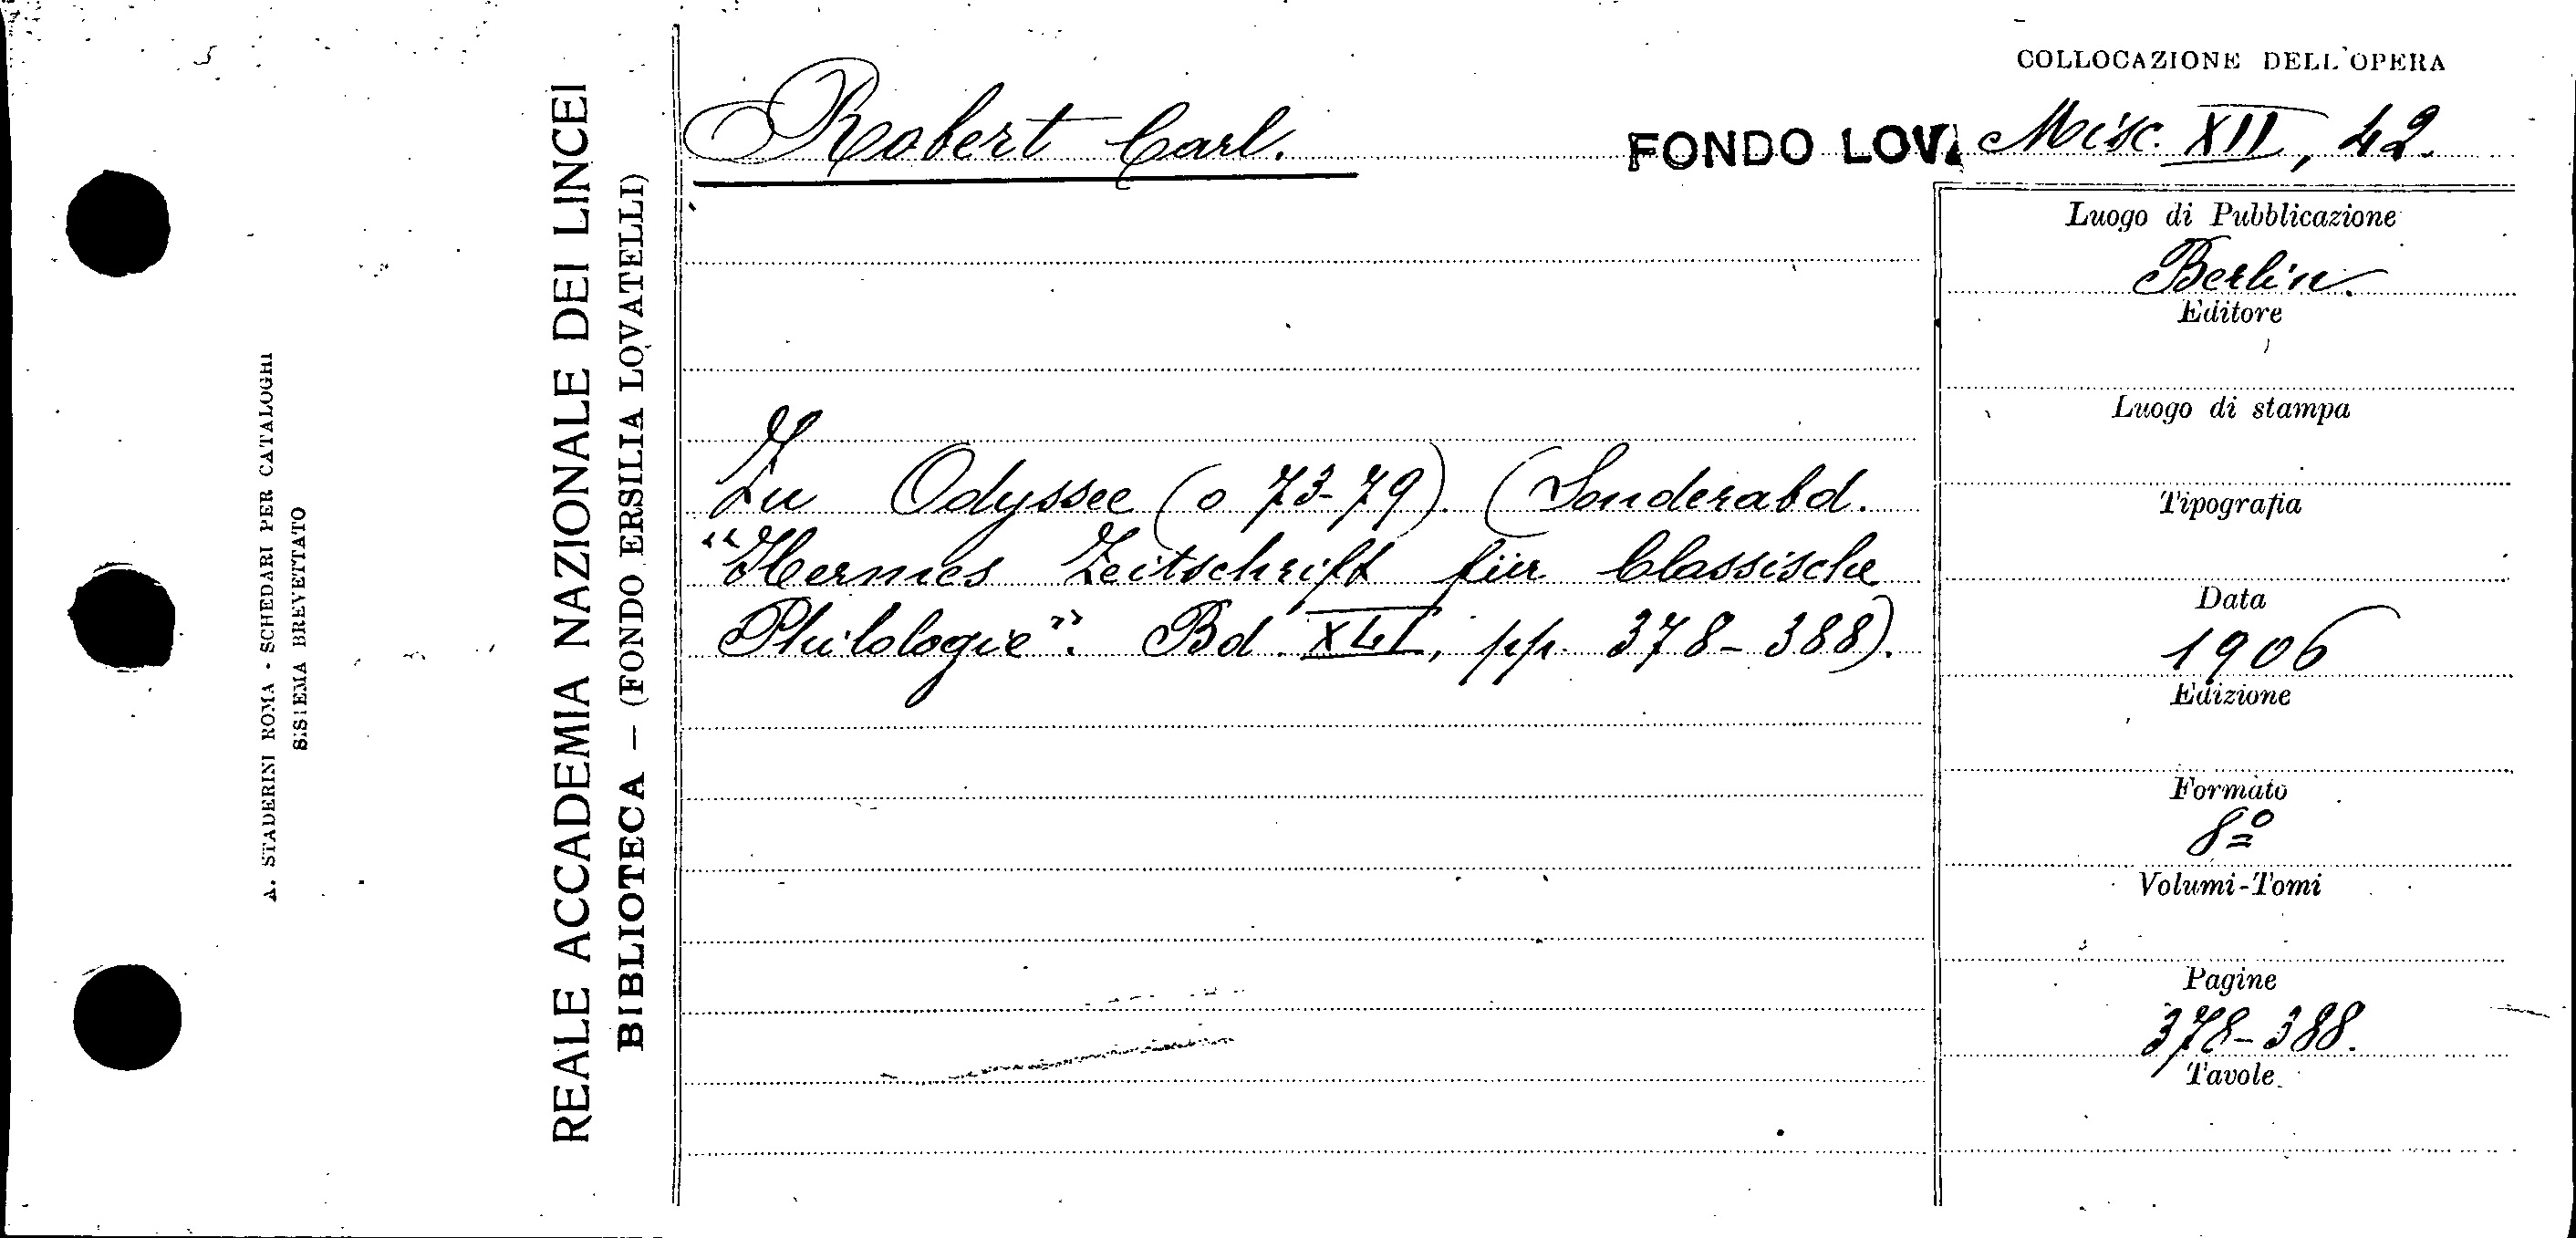 COLLOCAZIONE DELL'OPERA
Robert Carl.
FONDO LOV. Misc. XII, 42.
Zu Odyssee (o 73-79). (Sonderabd.
"Hermes Zeitschrift für Classische
Philologie". Bd. XLI, pp. 378-388).
Luogo di Pubblicazione
Berlin.
Editore
Luogo di stampa
Tipografia
Data
1906
Edizione
Formato
8º
Volumi-Tomi
Pagine
378-388.
Tavole
REALE ACCADEMIA NAZIONALE DEI LINCEI
BIBLIOTECA — (FONDO ERSILIA LOVATELLI)
A. STADERINI ROMA - SCHEDARI PER CATALOGHI
SISTEMA BREVETTATO